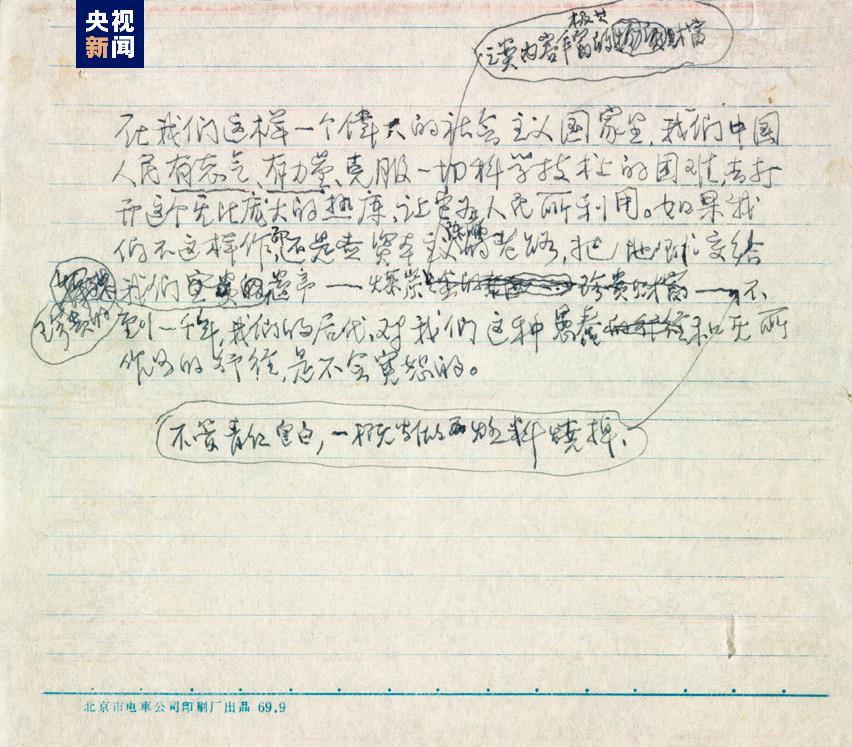 央视
新闻
极其
之类内容丰富的财富
在我们这样一个伟大的社会主义国家里，我们中国
人民有志气、有力量克服一切科学技术上的困难，去打
开这个无比庞大的热库，让它为人民所利用。如果我
们不这样作，还是走资本主义的老路，把地球交给
我们宝贵的遗产——煤炭珍贵财富——不
珍贵的
到一千年，我们的后代，对我们这种愚蠢和无所
作为的行径，是不会宽恕的。
不管青红皂白，一概当做燃料烧掉，
北京市电車公司印刷厂出品 69.9